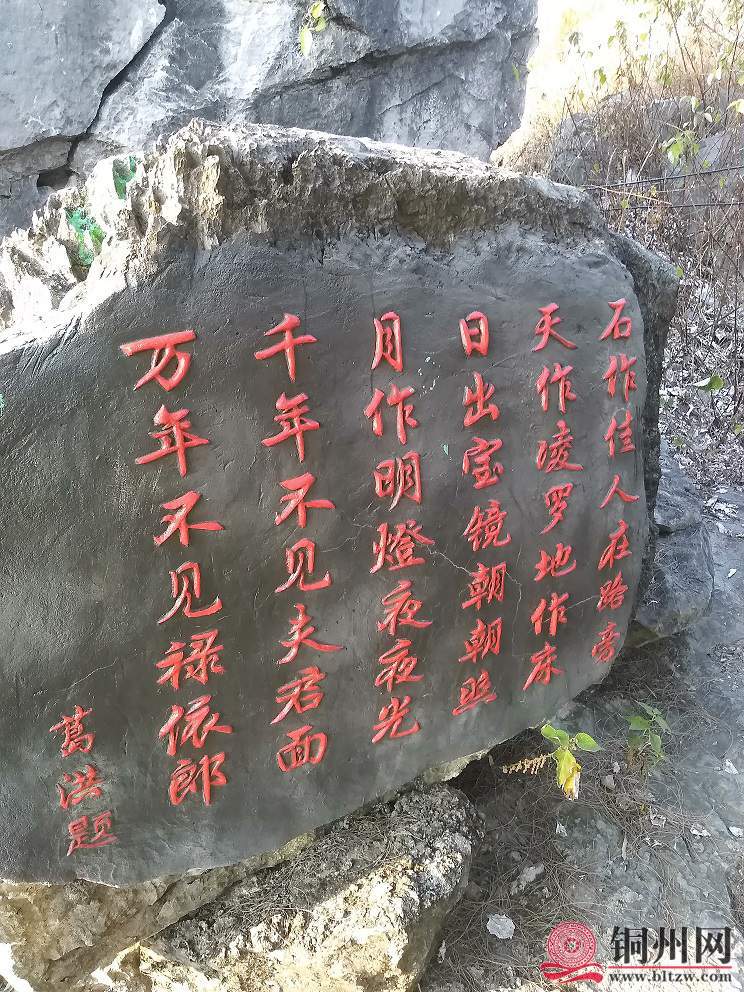 石作佳人在路旁
天作凌罗地作床
日出宝镜朝朝照
月作明燈夜夜光
千年不见夫君面
万年不见禄依郎
葛洪题
铜州网
www.bltzw.com